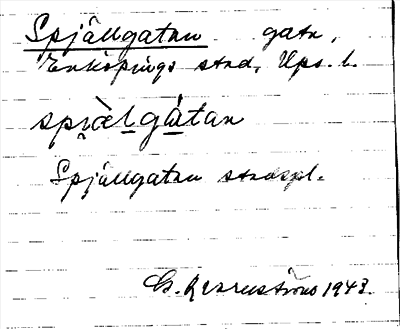 Spjällgatan gata,
Enköpings stad, Ups. l.
spjä̀lgátan
Spjällgatan stadspl.
G. 1943.